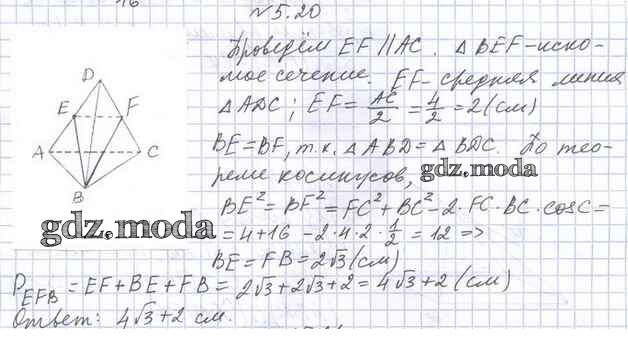 16
№5.20
Проведём EF || AC. △BEF - иско-
мое сечение. EF - средняя линия
△ADC; EF = AC/2 = 4/2 = 2 (см)
BE = BF, т.к. △ABD = △BDC. По тео-
gdz.moda
реме косинусов,
BE² = BF² = FC² + BC² - 2·FC·BC·cosC =
= 4 + 16 - 2·4·2·1/2 = 12 =>
BE = FB = 2√3 (см)
D
E F
A C
B
gdz.moda
P_EFB = EF + BE + FB = 2√3 + 2√3 + 2 = 4√3 + 2 (см)
Ответ: 4√3 + 2 см.